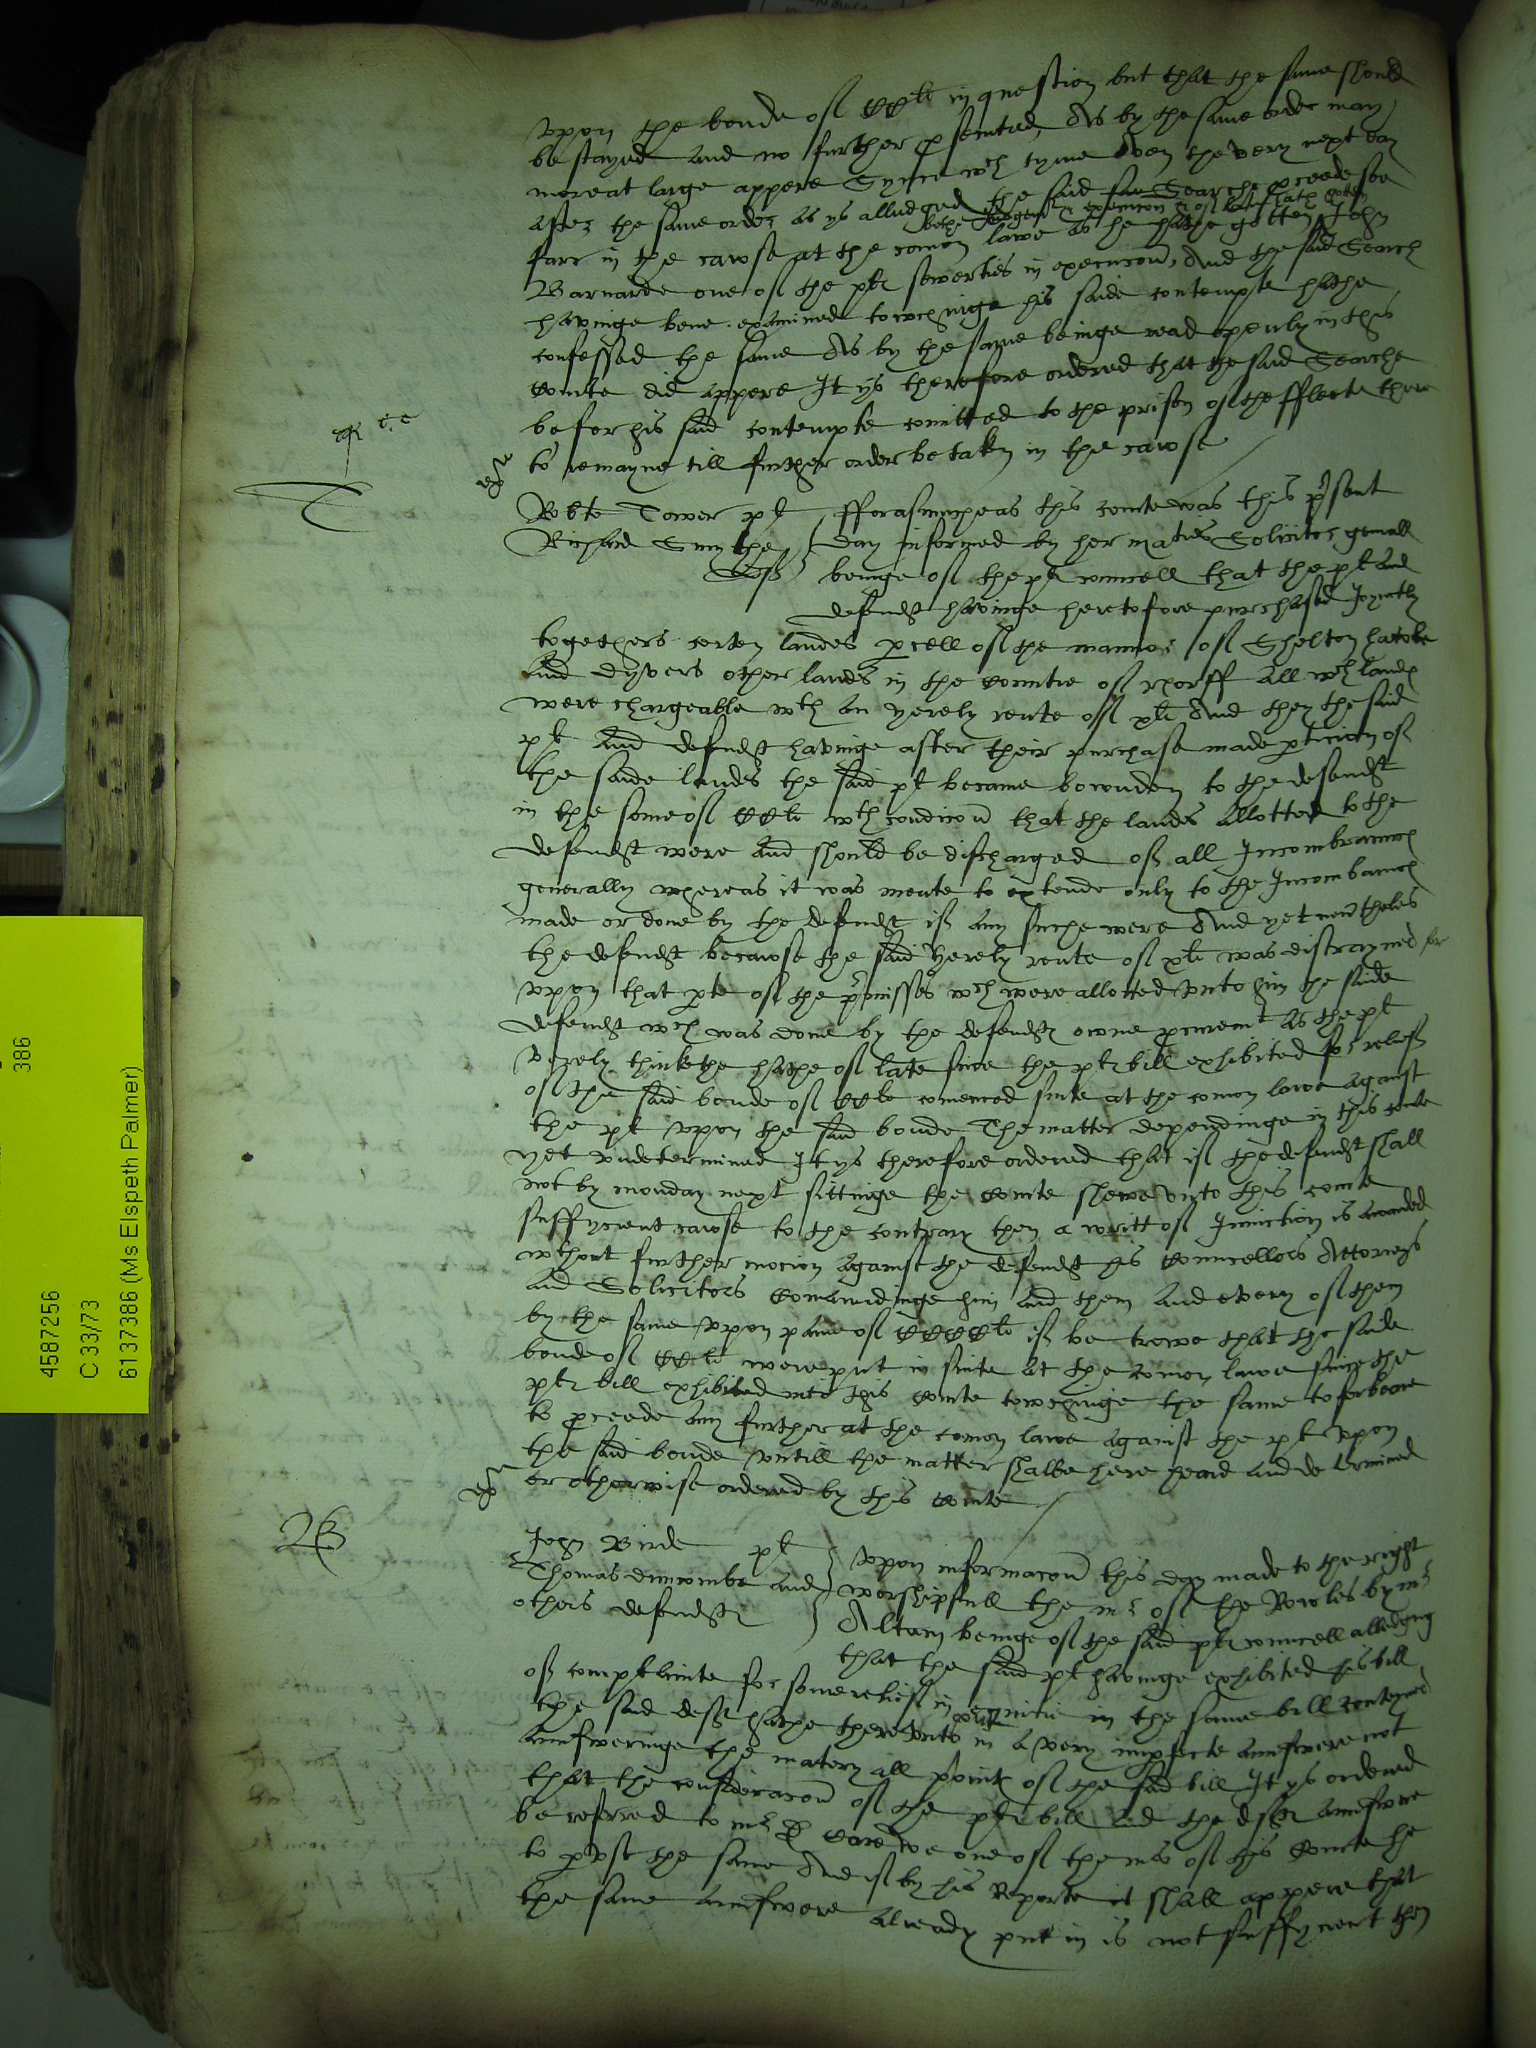 vpon the bonde of CCli in question but that the same should
be stayed and no further p sented, As by the same order may
more at large appere Synce wch tyme Even the very next day
after the same order as ys alledged the said Searche pceede soe
bothe Judgemt execucion & of late hath gotten
farr in the cawse at the comon lawe as he hathe gotten John
Barnarde one of the plts sewerties in execucon, And the said Search
havinge bene examined towchinge his saide contempte hathe
confessed the same As by the same beinge read openly in this
Courte did appere It ys therefore ordered that the said Searche
be for his said contempte comitted to the prison of the ffleete there
to remayne till further order be taken in the cawse
T
Robte Tower plt fforasmuche as this courte was this psent
Richard Smythe day informed by her maties Solicitor genall
deft beinge of the plts councell that the plt and
defendt havinge heretofore purchased Joyntly
togethers certen landes pcell of the mannor of Shelton
And dyvers other landes in the Countie of Norff All wch landes
were chargeable wth an yerely rente of xli And then the said
plt And defendt havinge after their purchase made pticion of
the saide landes the said plt became bounden to the defendt
in the some of CCli wth condicon that the landes Allotted to the
defendt were And should be discharged of all Incombraunces
generally whereas it was mente to extende only to the Incombrances
made or done by the defendt if any suche were And yet nevertheles
the defendt becawse the said yerely rente of xli was distrayned for
vpon that pte of the pmisses wch were allotted vnto him the saide
defendt wch was done by the defendts owne pcurement as the plt
verely thinkethe hathe of late since the plts bill exhibited for relief
of the said bonde of CCli comenced suite at the comon lawe against
the plt vpon the said bonde The matter dependinge in this courte
yet vndetermined It ys therefore ordered that if the defendt shall
not by monday next sittinge the Courte shewe vnto this courte
suffycient cawse to the contrary then a writt of Iniunction is awarded
wthout further mocion against the defendt his Councellors Attorneys
and Solicitors Comaundinge him and them and every of them
by the same vpon paine of CCCCli if be trewe that the saide
bonde of CCli were put in suite at the comon lawe since the
plts bill exhibited into this Courte towchinge the same to forbeare
to pceede any further at the comon lawe against the plt vpon
the said bonde vntill the matter shalbe here heard and determined
or otherwise ordered by this Courte
B
John Birde plt vpon informacon this day made to the right
Thomas duncombe and worshipfull the mr of the Rowles by mr
others defendts Altam beinge of the said plts councell alledging
that the said plt havinge exhibited his bill
of complainte for some relief in equitie in the same bill conteyned
the said defts hathe therevnto put in a very impfecte aunswere not
aunsweringe the materyall pointes of the said bill It ys ordered
that the consideracon of the plts bill and the defts aunswere
be referred to mr D Carewe one of the mrs of this Courte
to pvse the same And if by his Reporte it shall appere that
the same aunswere already put in is not suffycient then
386
4587256
C 33/73
6137386 (Ms Elspeth Palmer)